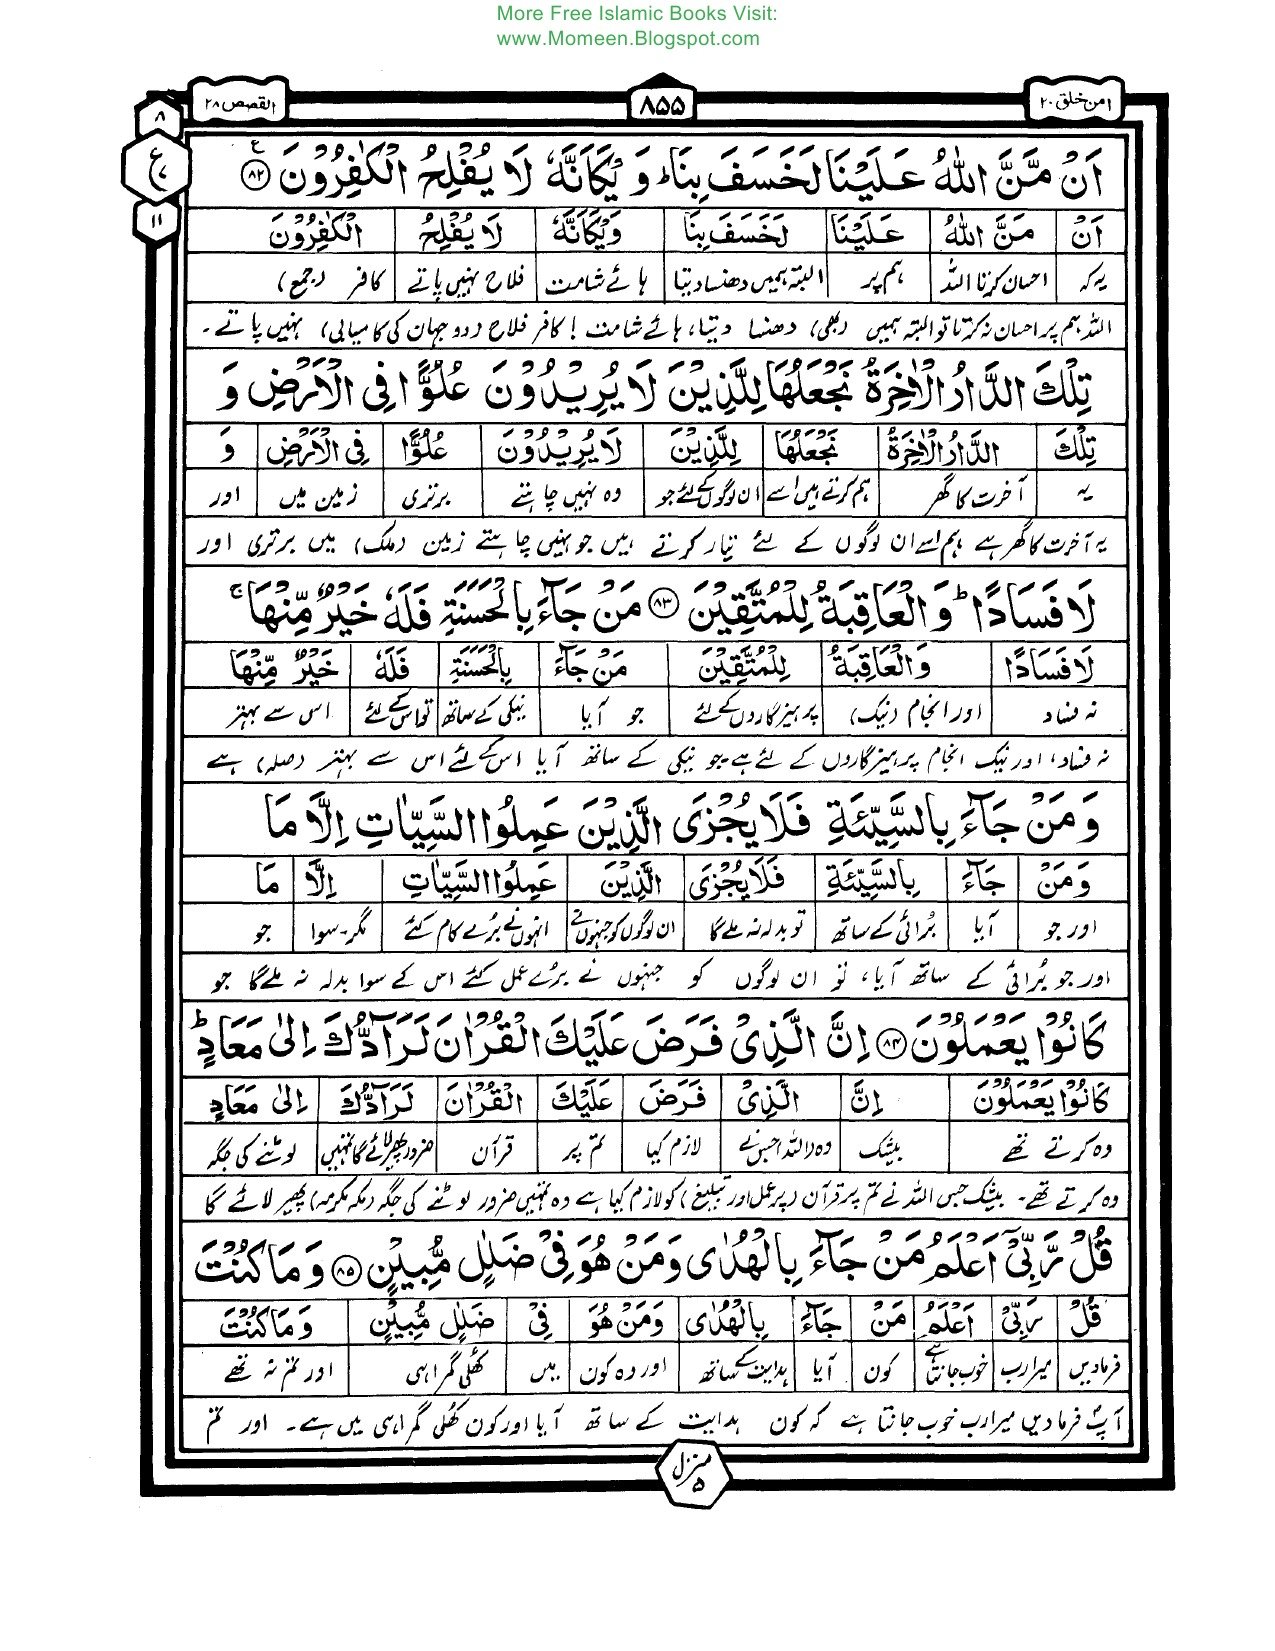 More Free Islamic Books Visit:
www.Momeen.Blogspot.com
امن خلق ۲۰
۸۵۵
القصص ۲۸
۸
ع
۷
۱۱
اَنْ مَّنَّ اللّٰهُ عَلَيْنَا لَخَسَفَ بِنَا ؕ وَيْكَاَنَّهٗ لَا يُفْلِحُ الْكٰفِرُوْنَ ۠ ﴿۸۲﴾ ع
اَنْ مَّنَّ اللّٰهُ عَلَيْنَا لَخَسَفَ بِنَا وَيْكَاَنَّهٗ لَا يُفْلِحُ الْكٰفِرُوْنَ
یہ کہ احسان کرتا اللہ ہم پر البتہ ہمیں دھنسا دیتا ہائے شامت فلاح نہیں پاتے کافر (جمع)
اللہ ہم پر احسان نہ کرتا تو البتہ ہمیں (بھی) دھنسا دیتا، ہائے شامت! کافر فلاح (دو جہان کی کامیابی) نہیں پاتے۔
تِلْكَ الدَّارُ الْاٰخِرَةُ نَجْعَلُهَا لِلَّذِيْنَ لَا يُرِيْدُوْنَ عُلُوًّا فِى الْاَرْضِ وَ
تِلْكَ الدَّارُ الْاٰخِرَةُ نَجْعَلُهَا لِلَّذِيْنَ لَا يُرِيْدُوْنَ عُلُوًّا فِى الْاَرْضِ وَ
یہ آخرت کا گھر ہم کرتے ہیں اسے ان لوگوں کے لئے جو وہ نہیں چاہتے برتری زمین میں اور
یہ آخرت کا گھر ہے ہم اسے ان لوگوں کے لئے تیار کرتے ہیں جو نہیں چاہتے زمین (ملک) میں برتری اور
لَا فَسَادًا ؕ وَالْعَاقِبَةُ لِلْمُتَّقِيْنَ ﴿۸۳﴾ مَنْ جَآءَ بِالْحَسَنَةِ فَلَهٗ خَيْرٌ مِّنْهَا ۚ
لَا فَسَادًا وَالْعَاقِبَةُ لِلْمُتَّقِيْنَ مَنْ جَآءَ بِالْحَسَنَةِ فَلَهٗ خَيْرٌ مِّنْهَا
نہ فساد اور انجام (نیک) پرہیزگاروں کے لئے جو آیا نیکی کے ساتھ تو اس کے لئے اس سے بہتر
نہ فساد، اور نیک انجام پرہیزگاروں کے لئے ہے۔ جو نیکی کے ساتھ آیا اس کے لئے اس سے بہتر (صلہ) ہے
وَمَنْ جَآءَ بِالسَّيِّئَةِ فَلَا يُجْزَى الَّذِيْنَ عَمِلُوا السَّيِّاٰتِ اِلَّا مَا
وَمَنْ جَآءَ بِالسَّيِّئَةِ فَلَا يُجْزَى الَّذِيْنَ عَمِلُوا السَّيِّاٰتِ اِلَّا مَا
اور جو آیا بُرائی کے ساتھ تو بدلہ نہ ملے گا ان لوگوں کو جنہوں نے انہوں نے بُرے کام کئے مگر۔سوا جو
اور جو بُرائی کے ساتھ آیا، تو ان لوگوں کو جنہوں نے بُرے عمل کئے اس کے سوا بدلہ نہ ملے گا جو
كَانُوْا يَعْمَلُوْنَ ﴿۸۴﴾ اِنَّ الَّذِىْ فَرَضَ عَلَيْكَ الْقُرْاٰنَ لَرَآدُّكَ اِلٰى مَعَادٍ ؕ
كَانُوْا يَعْمَلُوْنَ اِنَّ الَّذِىْ فَرَضَ عَلَيْكَ الْقُرْاٰنَ لَرَآدُّكَ اِلٰى مَعَادٍ
وہ کرتے تھے بیشک وہ (اللہ) جس نے لازم کیا تم پر قرآن ضرور پھیر لائے گا تمہیں لوٹنے کی جگہ
وہ کرتے تھے۔ بیشک جس اللہ نے تم پر قرآن (پر عمل اور تبلیغ) کو لازم کیا ہے وہ تمہیں ضرور لوٹنے کی جگہ (مکہ مکرمہ) پھیر لائے گا
قُلْ رَّبِّىْٓ اَعْلَمُ مَنْ جَآءَ بِالْهُدٰى وَمَنْ هُوَ فِىْ ضَلٰلٍ مُّبِيْنٍ ﴿۸۵﴾ وَمَا كُنْتَ
قُلْ رَّبِّىْٓ اَعْلَمُ مَنْ جَآءَ بِالْهُدٰى وَمَنْ هُوَ فِىْ ضَلٰلٍ مُّبِيْنٍ وَمَا كُنْتَ
فرمادیں میرا رب خوب جانتا ہے کون آیا ہدایت کے ساتھ اور وہ کون میں کھلی گمراہی اور تم نہ تھے
آپؐ فرمادیں میرا رب خوب جانتا ہے کہ کون ہدایت کے ساتھ آیا اور کون کھلی گمراہی میں ہے۔ اور تم
منزل ۵